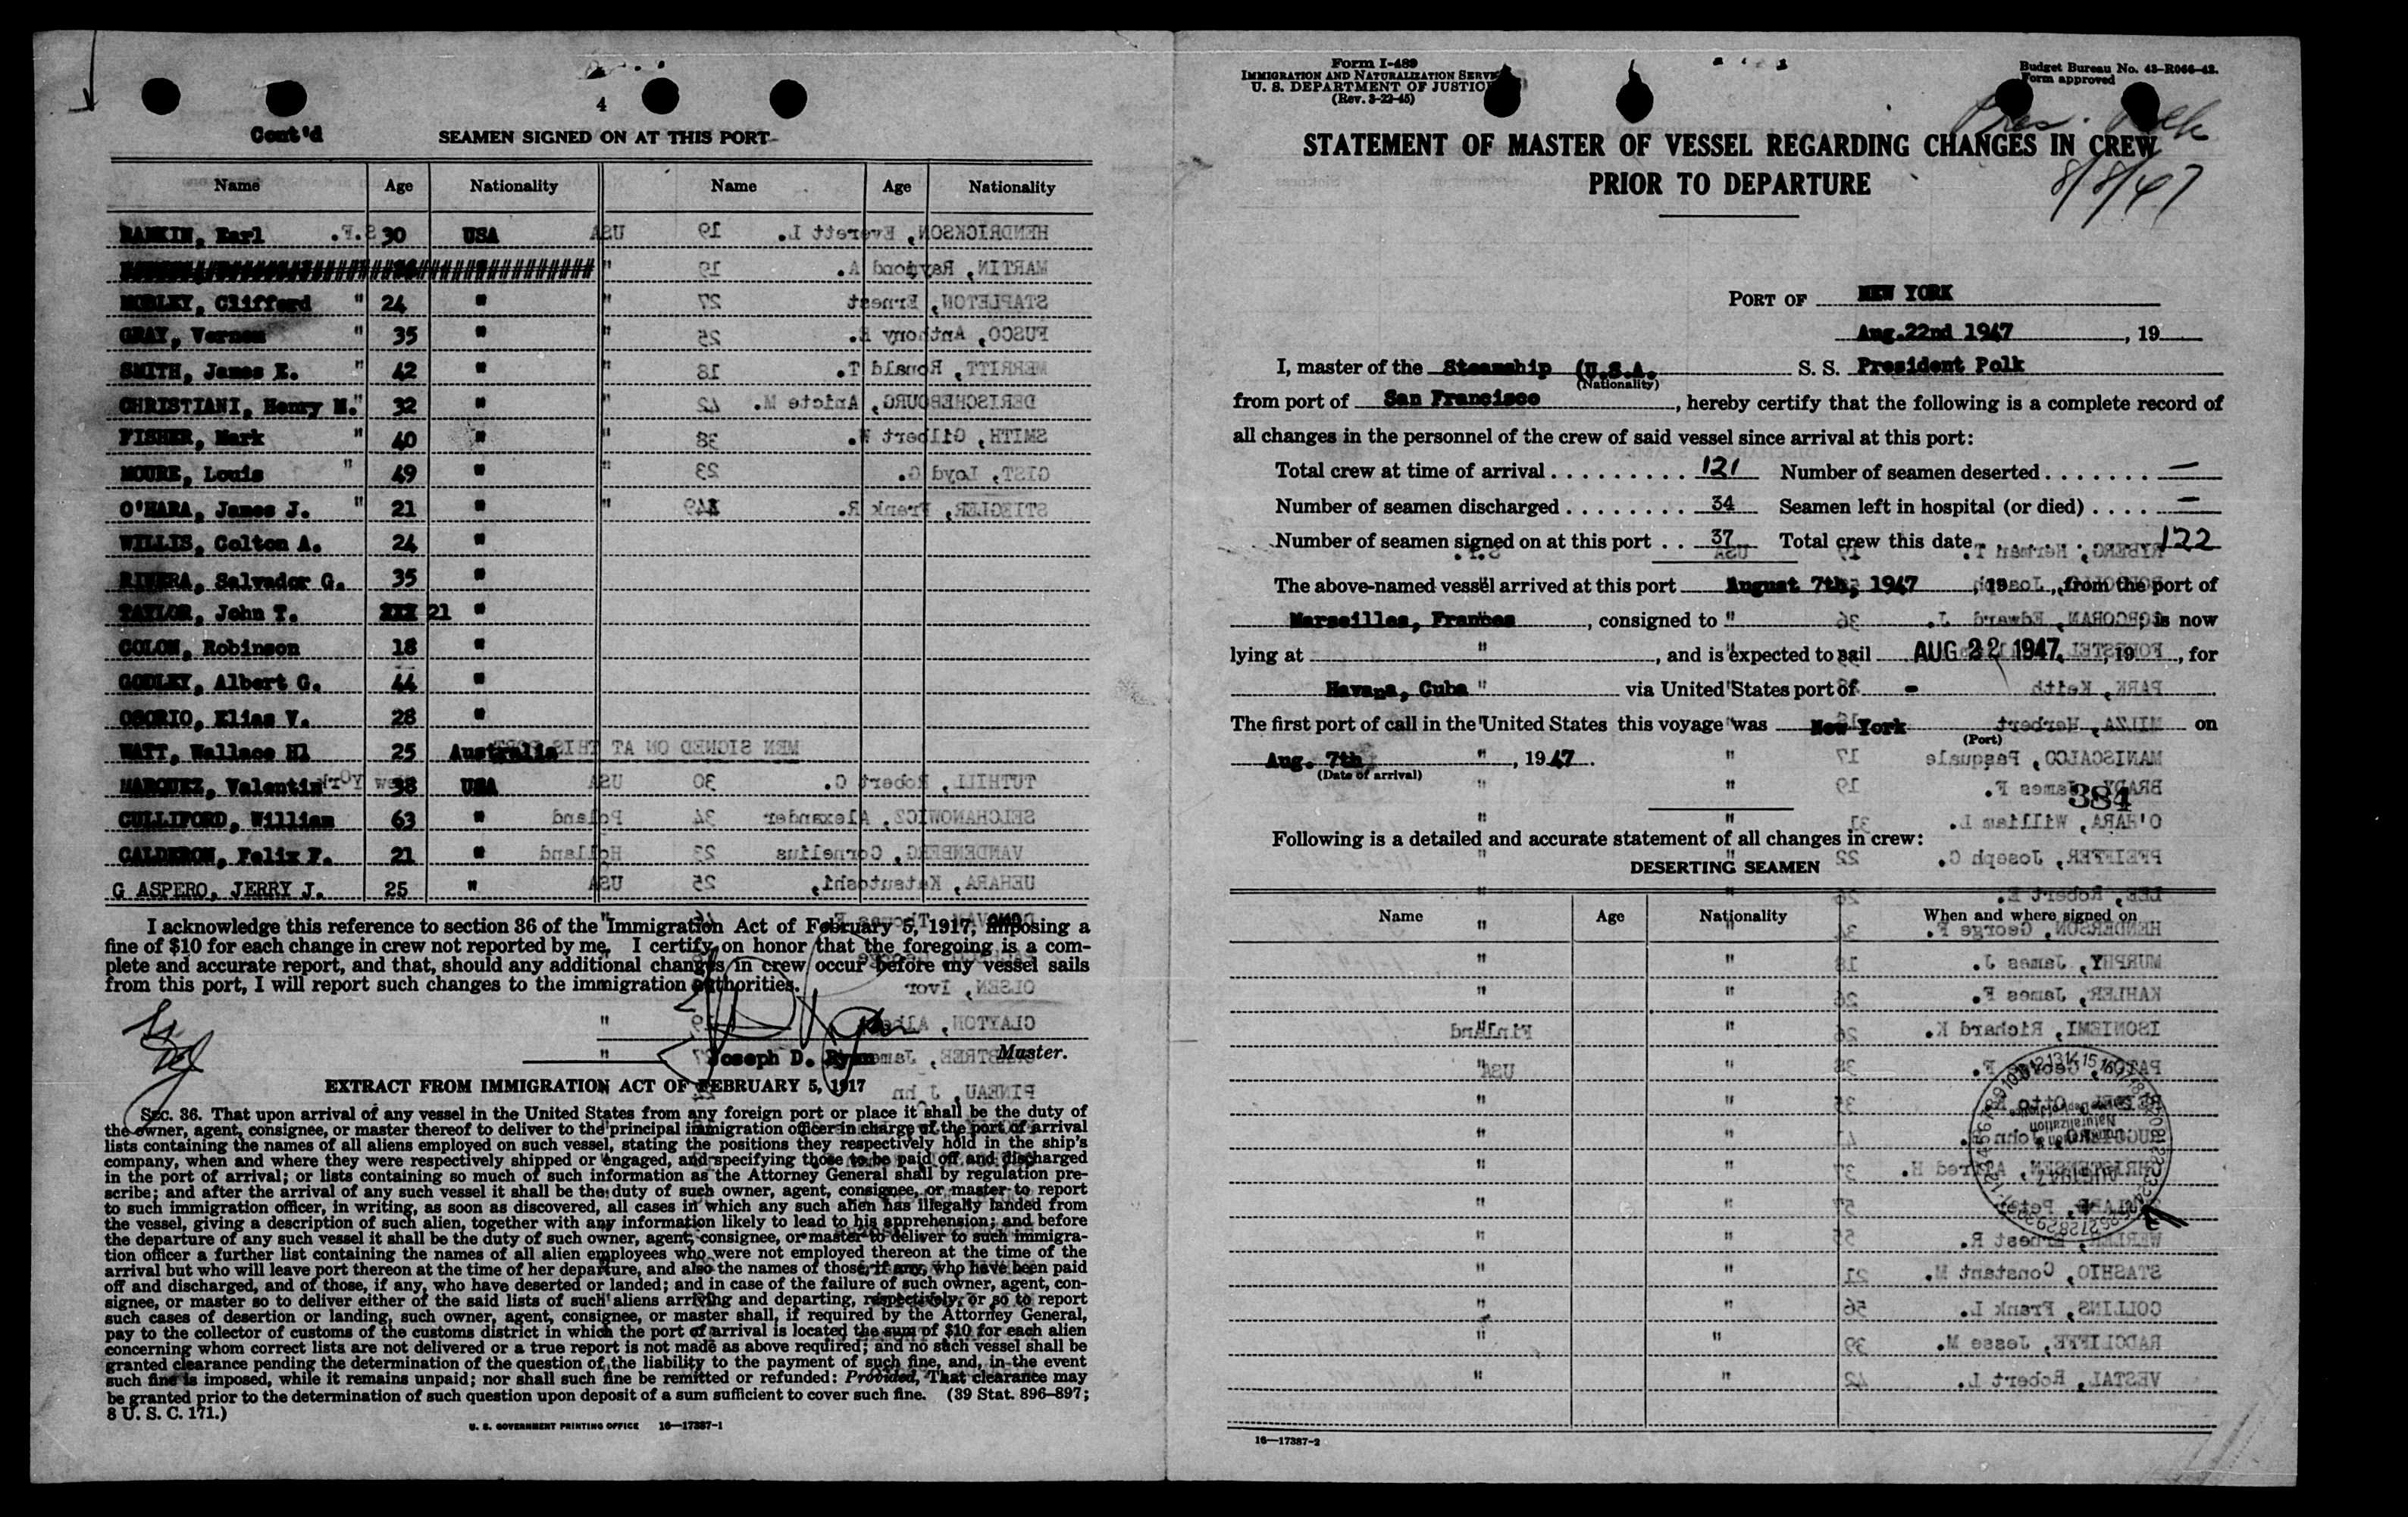 4
Cont'd SEAMEN SIGNED ON AT THIS PORT
Name Age Nationality Name Age Nationality
RANKIN, Earl S.F. 30 USA
MORLEY, Clifford " 24 "
GRAY, Vernon " 35 "
SMITH, James E. " 42 "
CHRISTIANI, Henry M. " 32 "
FISHER, Mark " 40 "
MOURE, Louis " 49 "
O'HARA, James J. " 21 "
WILLIS, Colton A. 24 "
RIVERA, Salvador G. 35 "
TAYLOR, John T. XXX 21 "
COLON, Robinson 18 "
GODLEY, Albert G. 44 "
OSORIO, Elias V. 28 "
WATT, Wallace Hl 25 Australia
MARQUEZ, Valentin 38 USA
CULLIFORD, William 63 "
CALDERON, Felix F. 21 "
G ASPERO, JERRY J. 25 "
I acknowledge this reference to section 36 of the Immigration Act of February 5, 1917, imposing a
fine of $10 for each change in crew not reported by me. I certify on honor that the foregoing is a com-
plete and accurate report, and that, should any additional changes in crew occur before my vessel sails
from this port, I will report such changes to the immigration authorities.
Joseph D. Ryan Master.
EXTRACT FROM IMMIGRATION ACT OF FEBRUARY 5, 1917
SEC. 36. That upon arrival of any vessel in the United States from any foreign port or place it shall be the duty of
the owner, agent, consignee, or master thereof to deliver to the principal immigration officer in charge of the port of arrival
lists containing the names of all aliens employed on such vessel, stating the positions they respectively hold in the ship's
company, when and where they were respectively shipped or engaged, and specifying those to be paid off and discharged
in the port of arrival; or lists containing so much of such information as the Attorney General shall by regulation pre-
scribe; and after the arrival of any such vessel it shall be the duty of such owner, agent, consignee, or master to report
to such immigration officer, in writing, as soon as discovered, all cases in which any such alien has illegally landed from
the vessel, giving a description of such alien, together with any information likely to lead to his apprehension; and before
the departure of any such vessel it shall be the duty of such owner, agent, consignee, or master to deliver to such immigra-
tion officer a further list containing the names of all alien employees who were not employed thereon at the time of the
arrival but who will leave port thereon at the time of her departure, and also the names of those, if any, who have been paid
off and discharged, and of those, if any, who have deserted or landed; and in case of the failure of such owner, agent, con-
signee, or master so to deliver either of the said lists of such aliens arriving and departing, respectively, or so to report
such cases of desertion or landing, such owner, agent, consignee, or master shall, if required by the Attorney General,
pay to the collector of customs of the customs district in which the port of arrival is located the sum of $10 for each alien
concerning whom correct lists are not delivered or a true report is not made as above required; and no such vessel shall be
granted clearance pending the determination of the question of the liability to the payment of such fine, and, in the event
such fine is imposed, while it remains unpaid; nor shall such fine be remitted or refunded: Provided, That clearance may
be granted prior to the determination of such question upon deposit of a sum sufficient to cover such fine. (39 Stat. 896–897;
8 U. S. C. 171.)
U. S. GOVERNMENT PRINTING OFFICE 16—17387-1
Form I-489
IMMIGRATION AND NATURALIZATION SERVICE
U. S. DEPARTMENT OF JUSTICE
(Rev. 3-22-45)
Budget Bureau No. 43-R066-42.
Form approved
Pres. Polk
8/8/47
STATEMENT OF MASTER OF VESSEL REGARDING CHANGES IN CREW
PRIOR TO DEPARTURE
PORT OF NEW YORK
Aug.22nd 1947, 19
I, master of the Steamship (U.S.A. S. S. President Polk
(Nationality)
from port of San Francisco, hereby certify that the following is a complete record of
all changes in the personnel of the crew of said vessel since arrival at this port:
Total crew at time of arrival 121 Number of seamen deserted —
Number of seamen discharged 34 Seamen left in hospital (or died) —
Number of seamen signed on at this port 37 Total crew this date 122
The above-named vessel arrived at this port August 7th, 1947, 19, from the port of
Marseilles, Frances, consigned to , is now
lying at , and is expected to sail AUG 22 1947, 19, for
Havana, Cuba via United States port of -
The first port of call in the United States this voyage was New York on
(Port)
Aug. 7th, 1947.
(Date of arrival)
384
Following is a detailed and accurate statement of all changes in crew:
DESERTING SEAMEN
Name Age Nationality When and where signed on
16—17387-2